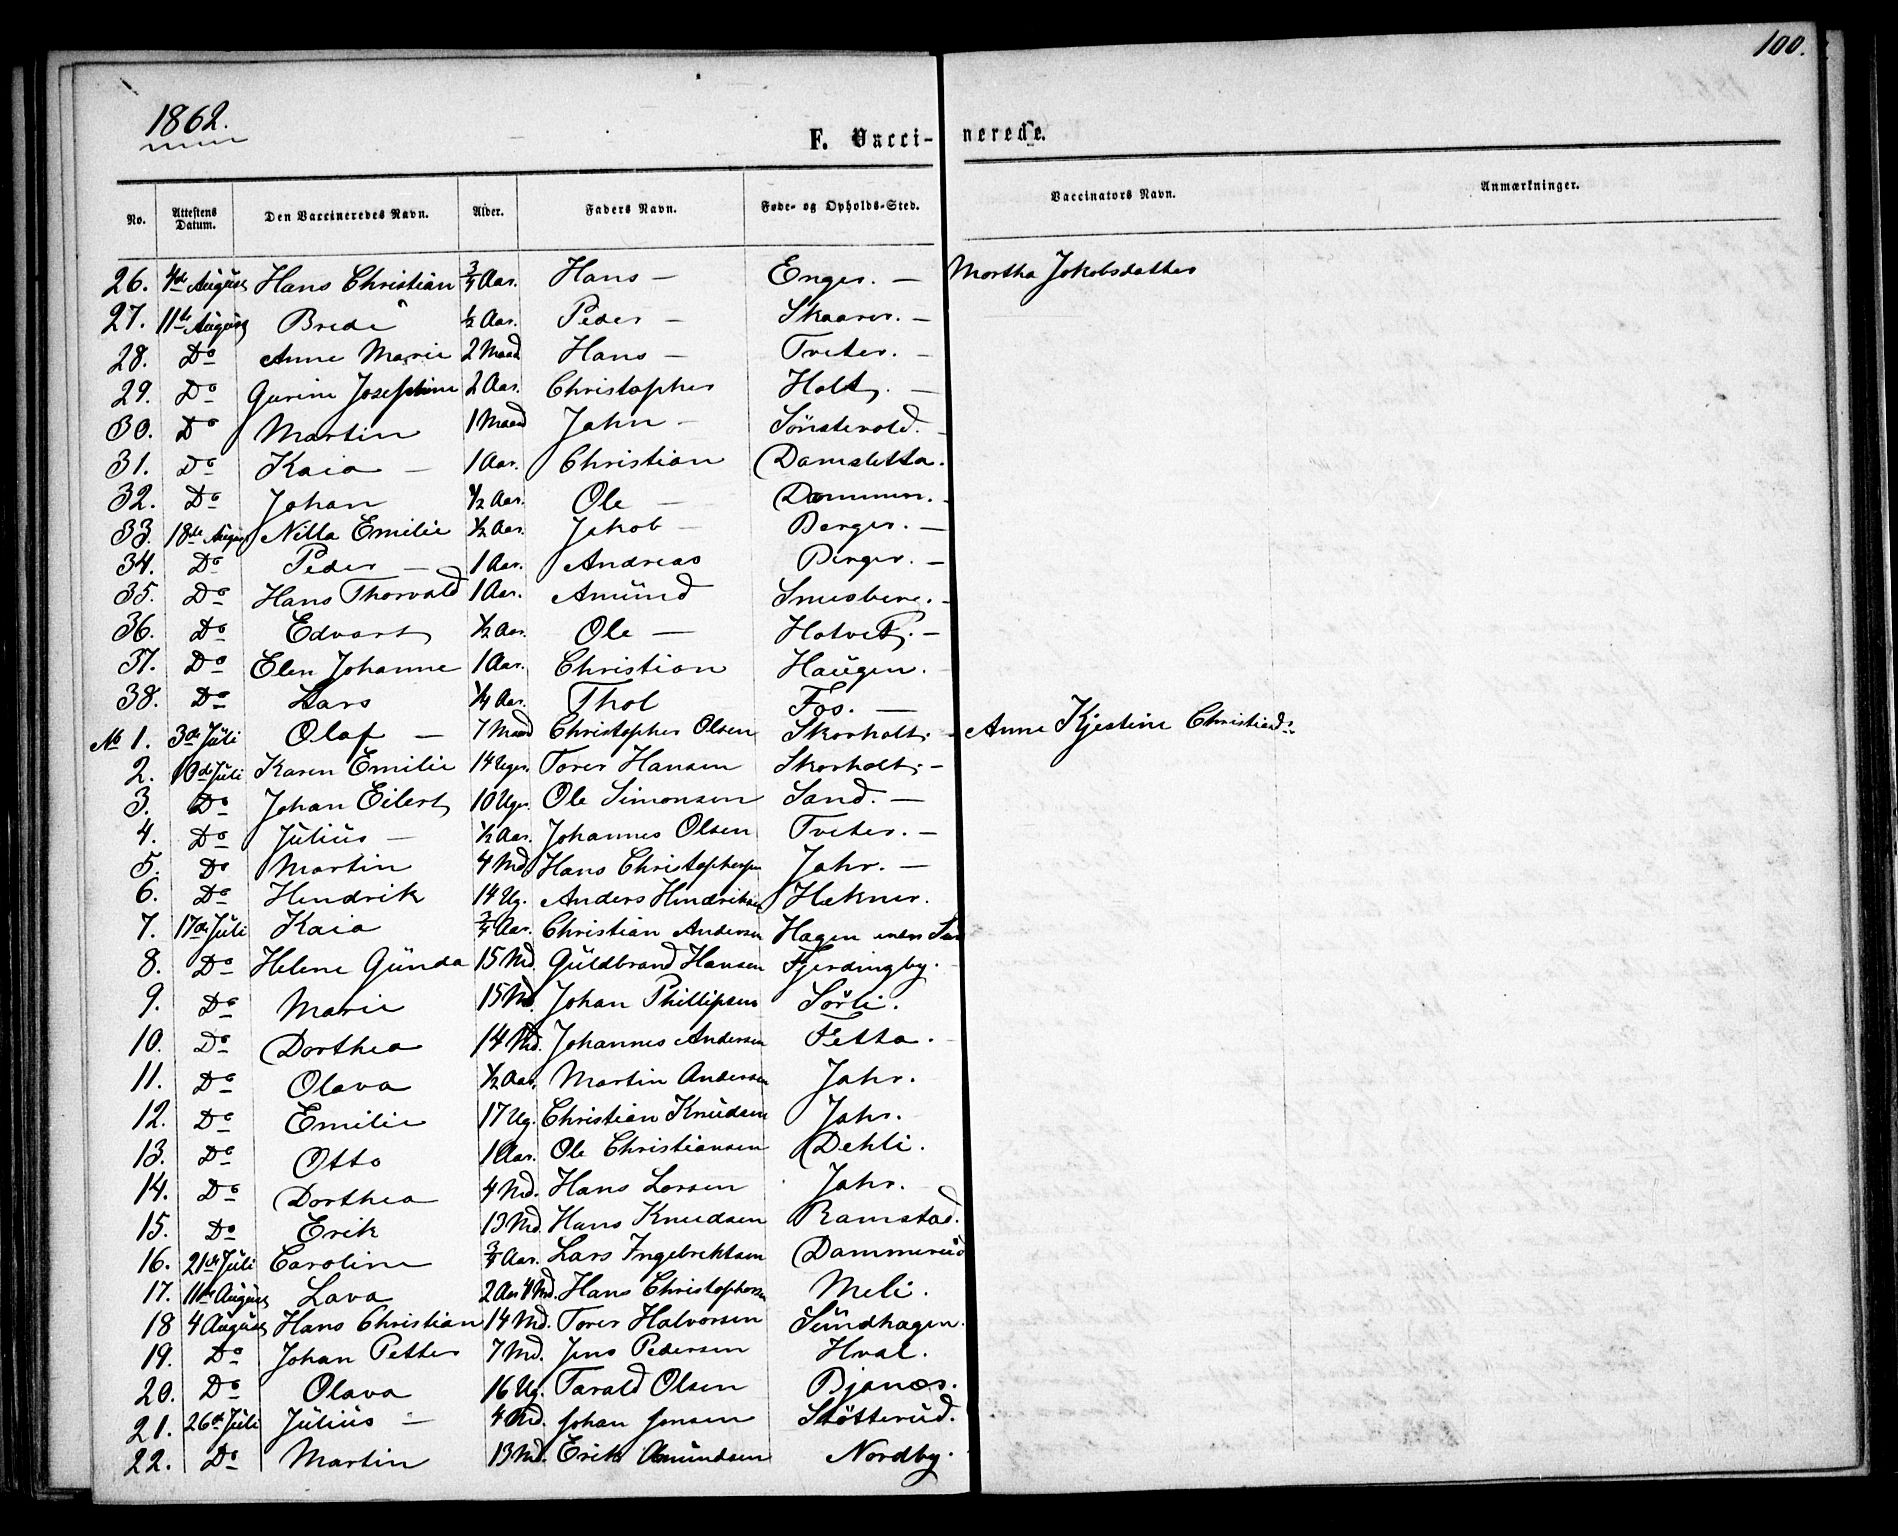 100.
1862.
F. Vacci- nerede.
No. Attestens Datum. Den Vaccineredes Navn. Alder. Faders Navn. Føde- og Opholds-Sted. Vaccinators Navn. Anmærkninger.
26. 4de August Hans Christian 3/4 Aar. Hans — Enger. — Martha Jakobsdatter
27. 11te August Brede ½ Aar. Peder — Skaarer. —
28. Do Anne Marie 2 Maad Hans — Tveter. —
29. Do Gurine Josephine 2 Aar. Christopher Holt. —
30. Do Martin 1 Maad John — Sönstevold. —
31. Do Kaia — 1 Aar. Christian Damsletta.
32. Do Johan ½ Aar. Ole — Dammen. —
33. 18de August Nilla Emilie ½ Aar. Jakob — Berger. —
34. Do Peder — 1 Aar. Andreas Berger. —
35. Do Hans Thorvald 1 Aar. Amünd
36. Do Edvart ½ Aar. Ole — Hotvet. —
37. Do Elen Johanne 1 Aar. Christian Haügen.
38. Do Lars ¼ Aar. Thol Fos. —
No 1. 3de Jüli Olaf — 7 Maad Christopher Olsen Skorholt. — Anne Kjestine Christiansd:
2. 10de Jüli Karen Emilie 14 Uger. Torer Hansen Skorholt. —
3. Do Johan Eilert 10 Uger. Ole Simonsen Sand. —
4. Do Jülius — ½ Aar. Johannes Olsen Tveter. —
5. Do Martin 4 Md Hans Christophersen Jahr. —
6. Do Hendrik 14 Ug. Anders Hendriksen Hækner.
7. 17de Jüli Kaia 3/4 Aar. Christian Andersen Hagen
8. Do Helene Günda 15 Md. Güldbrand Hansen Fjerdingby.
9. Do Marie 15 Md. Johan Phillipsen Sörli.
10. Do Dorthea 14 Md. Johannes Andersen Fetta.
11. Do Olava ½ Aar. Martin Andersen Jahr.
12. Do Emilie 17 Ug. Christian Knüdsen Jahr.
13. Do Otto 1 Aar. Ole Christiansen Dehli.
14. Do Dorthea 4 Md. Hans Larsen Jahr.
15. Do Erik 13 Md. Hans Knudsen Ramstad.
16. 21de Jüli Caroline 3/4 Aar. Lars Ingebrektsen Dammerud
17. 11te August Lava 2 Aar 4 Md. Hans Christophersen Meli.
18 4 August Hans Christian 14 Md. Torer Halvorsen Sündhagen.
19. Do Johan Petter 7 Md. Jens Pedersen Hval.
20. Do Olava 16 Ug. Tarald Olsen Bjanæs.
21. 26de Jüli Jülius — 4 Md. Johan Jonsen Stötterüd.
22. Do Martin 13 Md. Erik Amündsen Nordby.